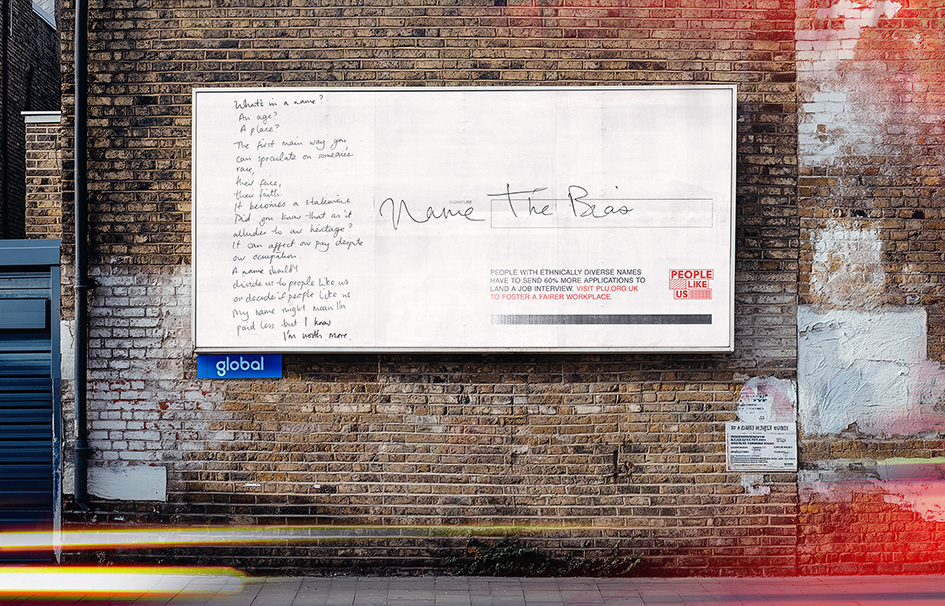 What's in a name?
An age?
A place?
The first main way you
can speculate on someone's
race,
their face,
their faith.
It becomes a statement
Did you know that as it
alludes to our heritage?
It can affect our pay despite
our occupation.
A name shouldn't
divide us to people like us
or decide if people like us
My name might mean I'm
paid less but I know
I'm worth more.
SIGNATURE
Name The Bias
PEOPLE WITH ETHNICALLY DIVERSE NAMES
HAVE TO SEND 60% MORE APPLICATIONS TO
LAND A JOB INTERVIEW. VISIT PLU.ORG.UK
TO FOSTER A FAIRER WORKPLACE.
PEOPLE
LIKE
US
global